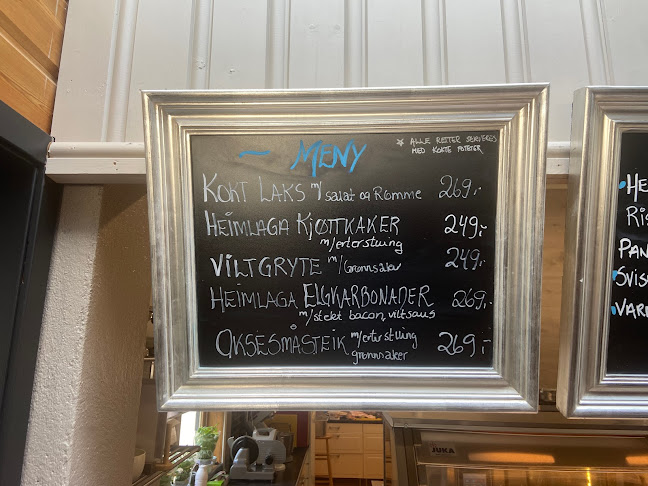 ~ MENY
* ALLE RETTER SERVERES
MED KOKTE POTETER
KOKT LAKS m/ salat og Rømme 269,-
HEIMLAGA KJØTTKAKER 249,-
m/erterstuing
VILTGRYTE m/Grønnsaker 249,-
HEIMLAGA ELGKARBONADER 269,-
m/stekt bacon, viltsaus
OKSESMÅSTEIK m/ertestuing 269,-
grønnsaker
HE
RIS
PAN
SVIS
VAR
JUKA